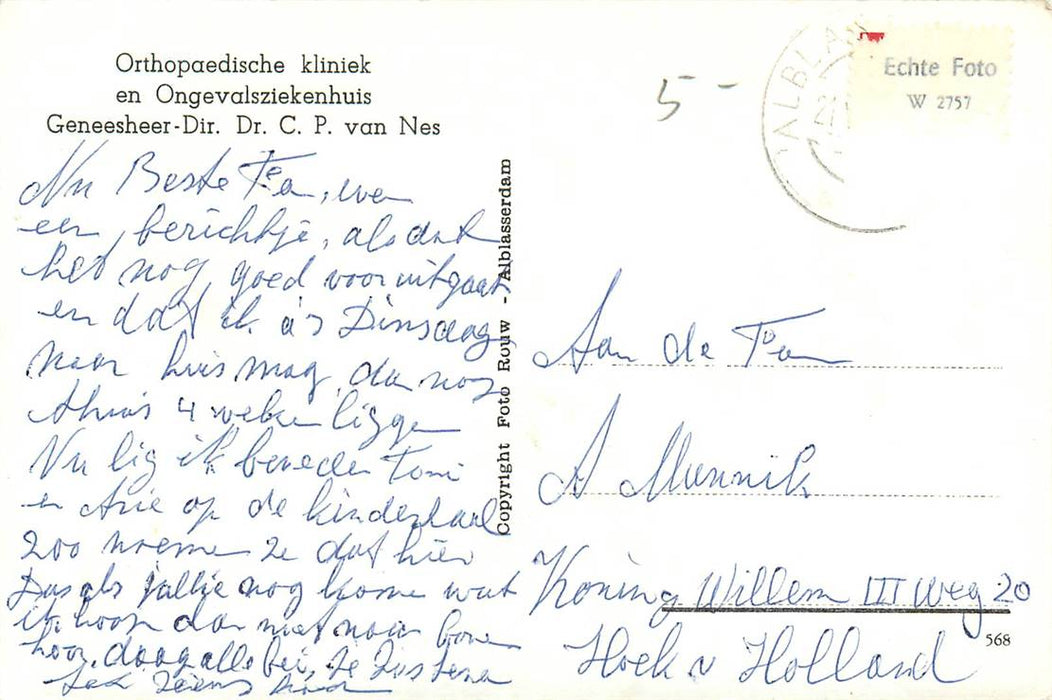 Orthopaedische kliniek
en Ongevalsziekenhuis
Geneesheer-Dir. Dr. C. P. van Nes
Nu Beste Fe, even
een berichtje, als dat
het nog goed vooruitgaat
en dat ik a's Dinsdag
naar huis mag, dan nog
thuis 4 weken liggen
Nu lig ik beneden
en Arie op de kinderzaal
zoo noemen ze dat hier
Dus als jullie nog komen wat
ik hoop dan niet naar boven
hoor. daag alle bei,
Copyright Foto Rouw - Alblasserdam
5 -
ALBLA
21
Echte Foto
W 2757
Aan de Fam
A Munnik
Koning Willem III Weg 20
Hoek v Holland
568